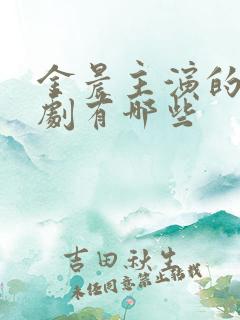 金晨主演的
劇有哪些
吉田秋生
未经同意禁止转载